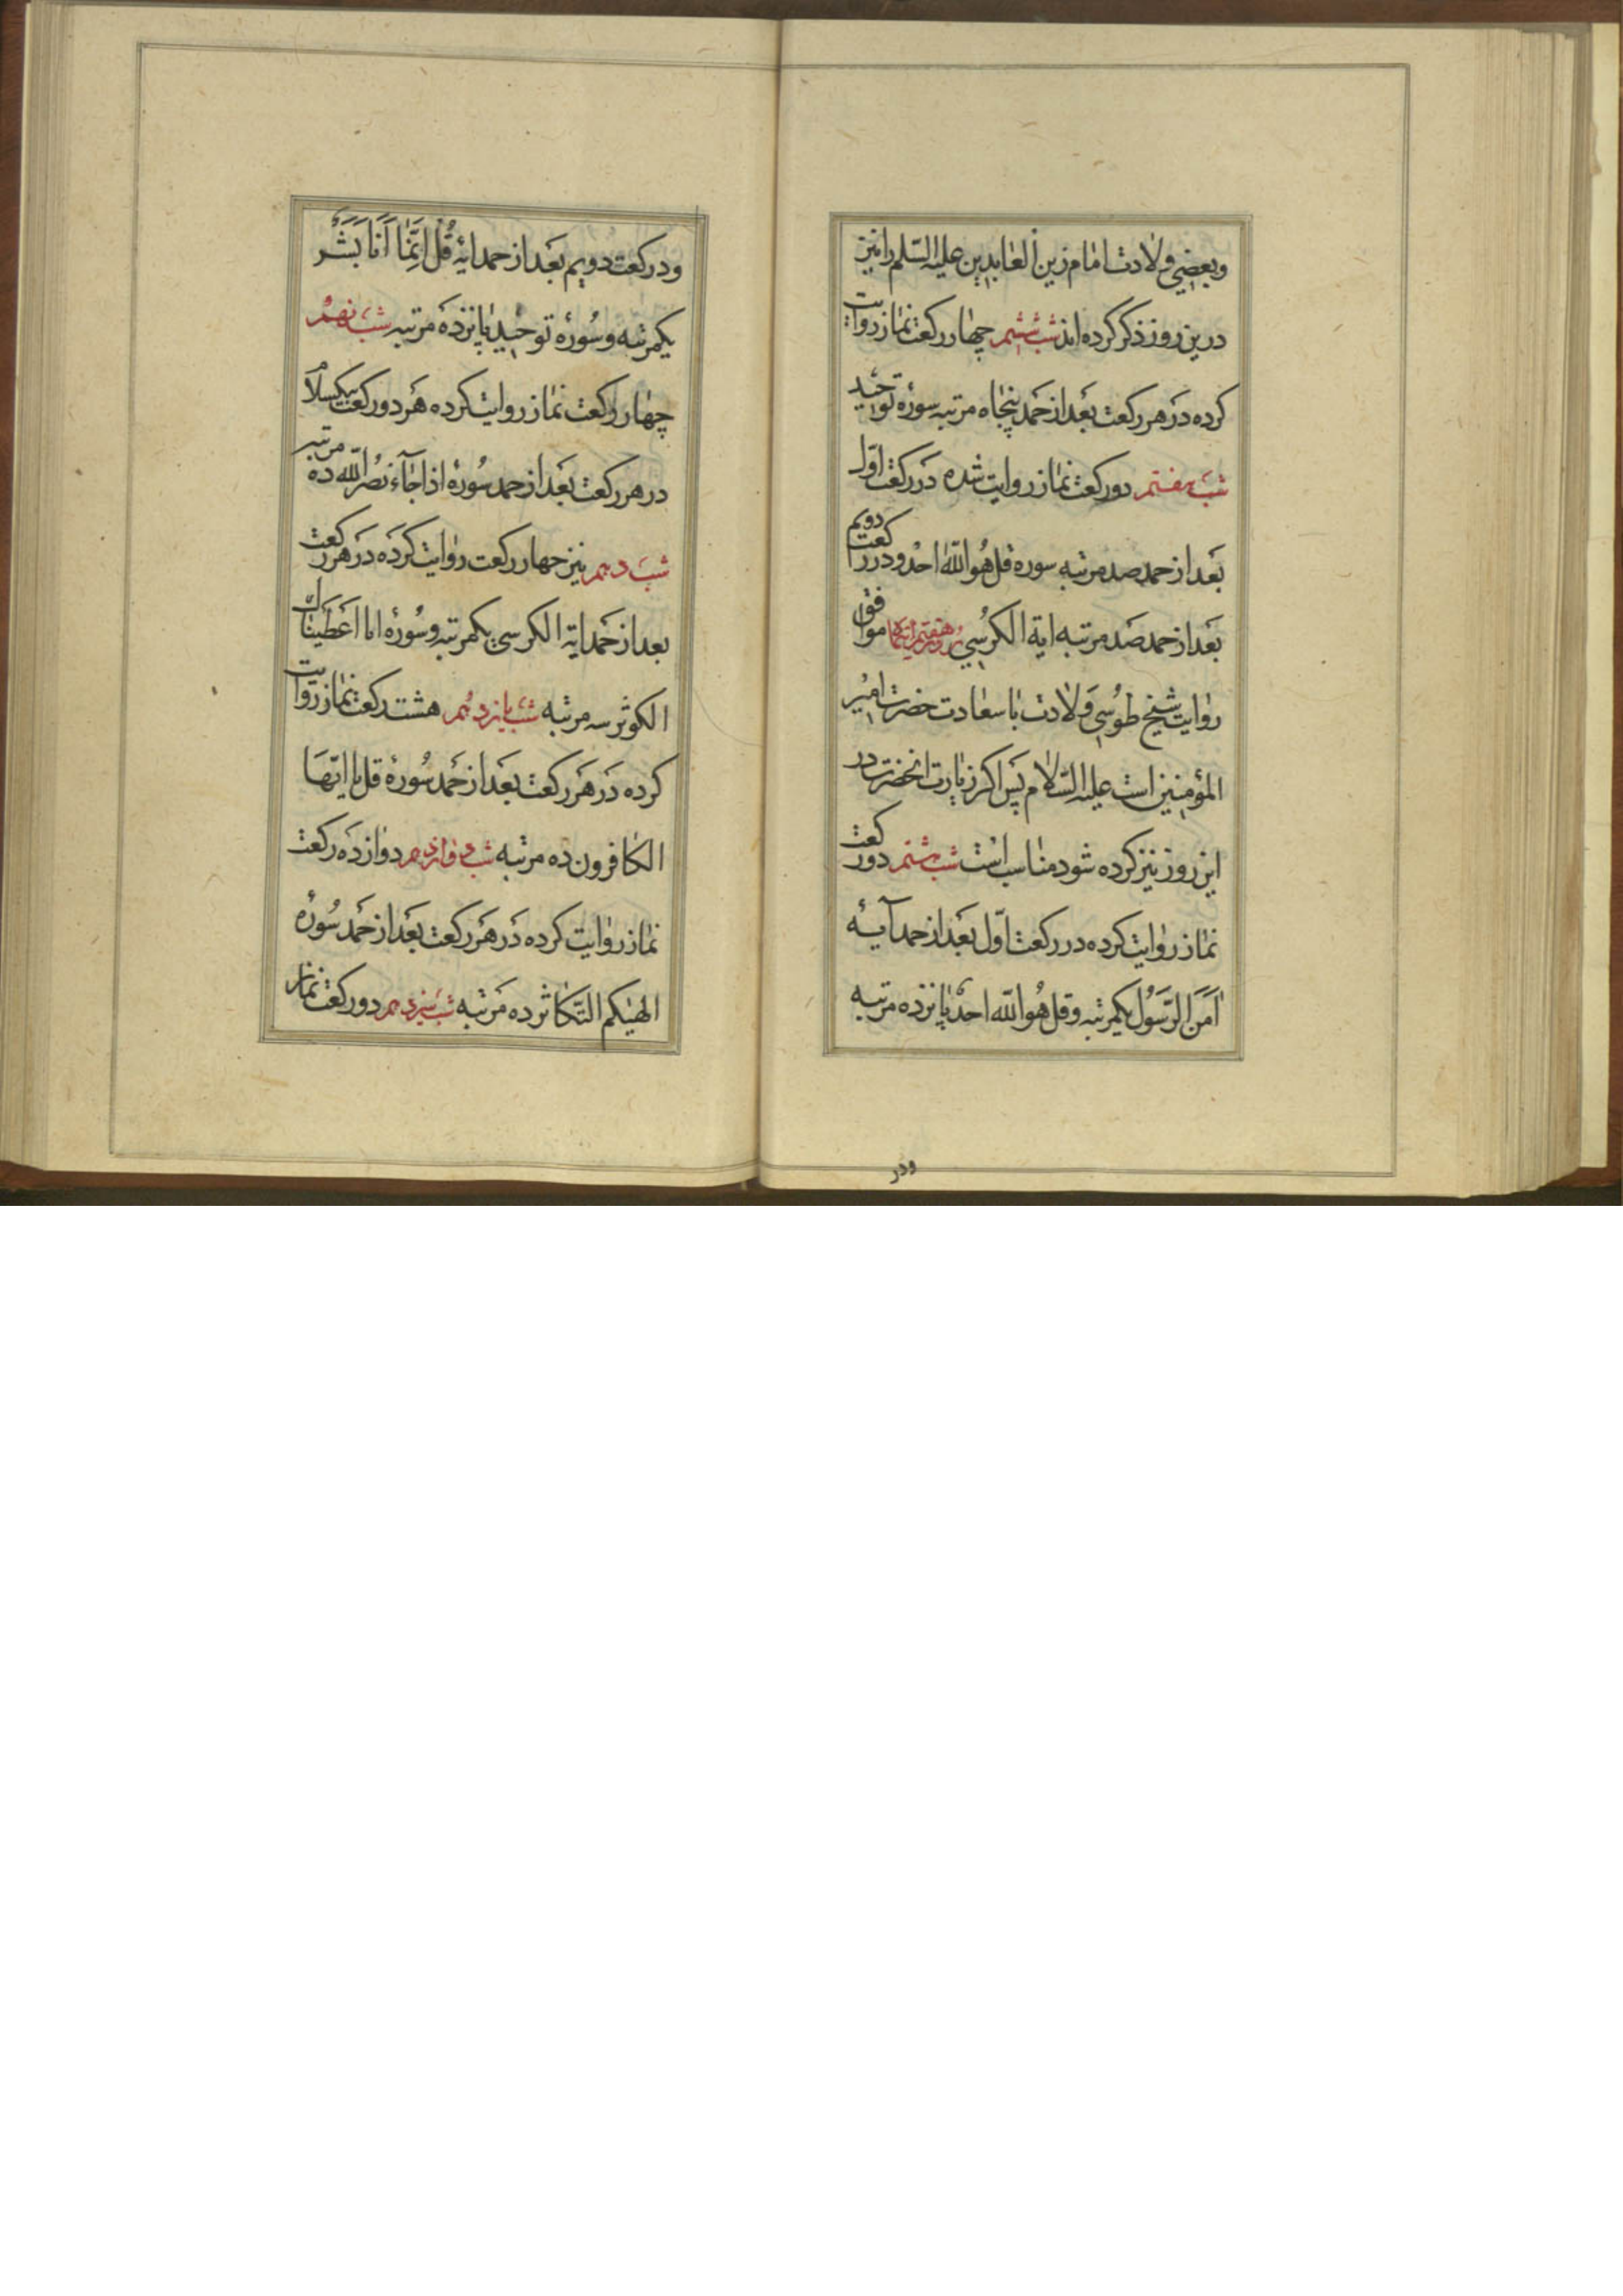 وبعضي ولادت امام زين العابدين عليه السّلم را نيز
درين روز ذكر كرده اند شب ششم چهار ركعت نماز روايت
كرده در هر ركعت بعد از حمد پنجاه مرتبه سورۀ توحيد
شب هفتم دو ركعت نماز روايت شده در ركعت اوّل
بعد از حمد صد مرتبه سوره قل هُو اللّه احدٌ و در ركعت دويم
بعد از حمد صد مرتبه اية الكرُسي روز هفتم اينماه موافق
روايت شيخ طوُسي ولادت با سعادت حضرت امير
المؤمنين است عليه السّلام پس اكر زيارت انحضرت در
اين روز نيز كرده شود مناسب است شب هشتم دو ركعت
نماز روايت كرده در ركعت اوّل بعد از حمد آيۀ
اٰمَنَ الرَّسوُل يكمرتبه و قل هُو اللّه احدٌ پانزده مرتبه
ودر
ودر ركعت دويم بعَد از حمد ايۀ قُل اِنَّمٰا اَنَا بَشَرٌ
يكمرتبه و سُورۀ توحيد پانزده مرتبه شب نهم
چهار ركعت نماز روايت كرده هر دو ركعت بيكسلام
در هر ركعت بعَد از حمد سُورۀ اذا جٰاۤء نصرُ اللّه ده مرتبه
شب دهم نيز چهار ركعت روايت كرده در هر ركعت
بعد از حمَد اية الكرسي يكمرتبه و سُورۀ انا اعَطيناك
الكوثر سه مرتبه شب يازدهُم هشت ركعت نماز روايت
كرده در هَر ركعت بعَد از حمَد سُورۀ قل يا ايّها
الكٰافرون ده مرتبه شب دوازدهم دوازده ركعت
نماز روايت كرده در هَر ركعت بعَد از حمَد سُورۀ
الهٰيكم التّكاثر ده مَرتبه شب سيزدهم دو ركعت نماز